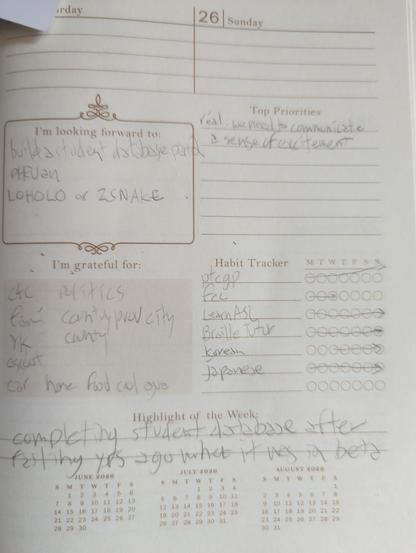 rday
26 Sunday
Top Priorities
real: we need to communicate
a sense of excitement
I'm looking forward to:
build a student database portal
LOHOLO or ZSNAKE
I'm grateful for:
politics
county prov city
county
car home food
Habit Tracker M T W T F S S
ptcgp
fcc
Learn ASL
Braille Tutor
korean
japanese
Highlight of the Week:
completing student database after
failing yrs ago when it was in beta
JUNE 2020
S M T W T F S
1 2 3 4 5 6
7 8 9 10 11 12 13
14 15 16 17 18 19 20
21 22 23 24 25 26 27
28 29 30
JULY 2020
S M T W T F S
1 2 3 4
5 6 7 8 9 10 11
12 13 14 15 16 17 18
19 20 21 22 23 24 25
26 27 28 29 30 31
AUGUST 2020
S M T W T F S
1
2 3 4 5 6 7 8
9 10 11 12 13 14 15
16 17 18 19 20 21 22
23 24 25 26 27 28 29
30 31